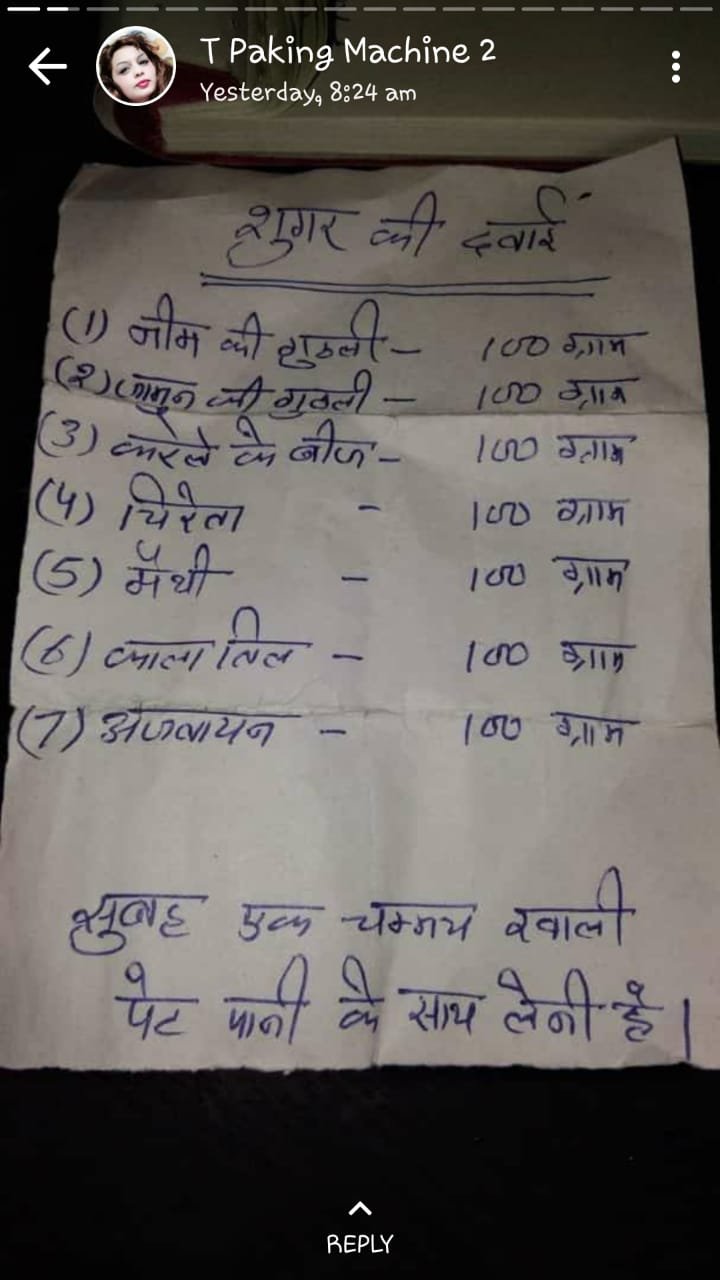 T Paking Machine 2
Yesterday, 8:24 am
शुगर की दवाई
(1) नीम की गुठली - 100 ग्राम
(2) जामुन की गुठली - 100 ग्राम
(3) करेले के बीज - 100 ग्राम
(4) चिरेता - 100 ग्राम
(5) मैथी - 100 ग्राम
(6) काला तिल - 100 ग्राम
(7) अजवायन - 100 ग्राम
सुबह एक चम्मच खाली
पेट पानी के साथ लेनी है।
REPLY